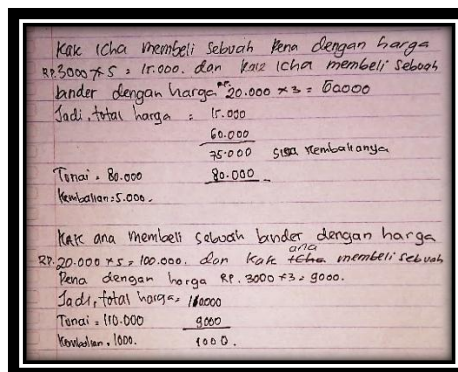 Kak Icha membeli sebuah Pena dengan harga
RP.3000 x 5 = 15.000. dan Kak Icha membeli sebuah
binder dengan harga RP. 20.000 x 3 = 60000
Jadi, total harga = 15.000
60.000
75.000 sisa kembalianya
Tunai = 80.000 80.000 -
Kembalian = 5.000.
Kak ana membeli sebuah binder dengan harga
RP. 20.000 x 5 = 100.000. dan Kak ana membeli sebuah
Pena dengan harga RP. 3000 x 3 = 9000.
Jadi, total harga =
Tunai = 110.000 9000
Kembalian = 1000. 1000.